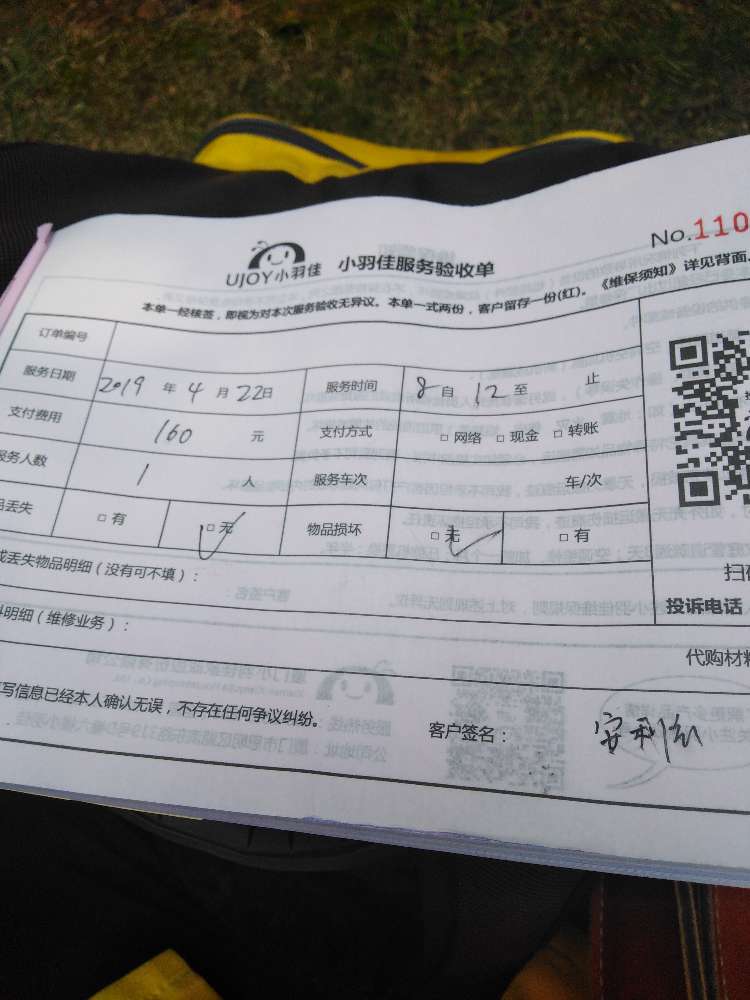 No.110
UJOY小羽佳 小羽佳服务验收单
本单一经核签，即视为对本次服务验收无异议。本单一式两份，客户留存一份(红)。《维保须知》详见背面.
订单编号
服务日期 2019 年 4 月 22日 服务时间 8 自 12 至 止
支付费用 160 元 支付方式 □ 网络 □ 现金 □ 转账
服务人数 1 人 服务车次 车/次
品丢失 □ 有 □ 无 ✓ 物品损坏 □ 无 ✓ □ 有
或丢失物品明细（没有可不填）：
扫
投诉电话
料明细（维修业务）：
代购材料
写信息已经本人确认无误，不存在任何争议纠纷。 客户签名：